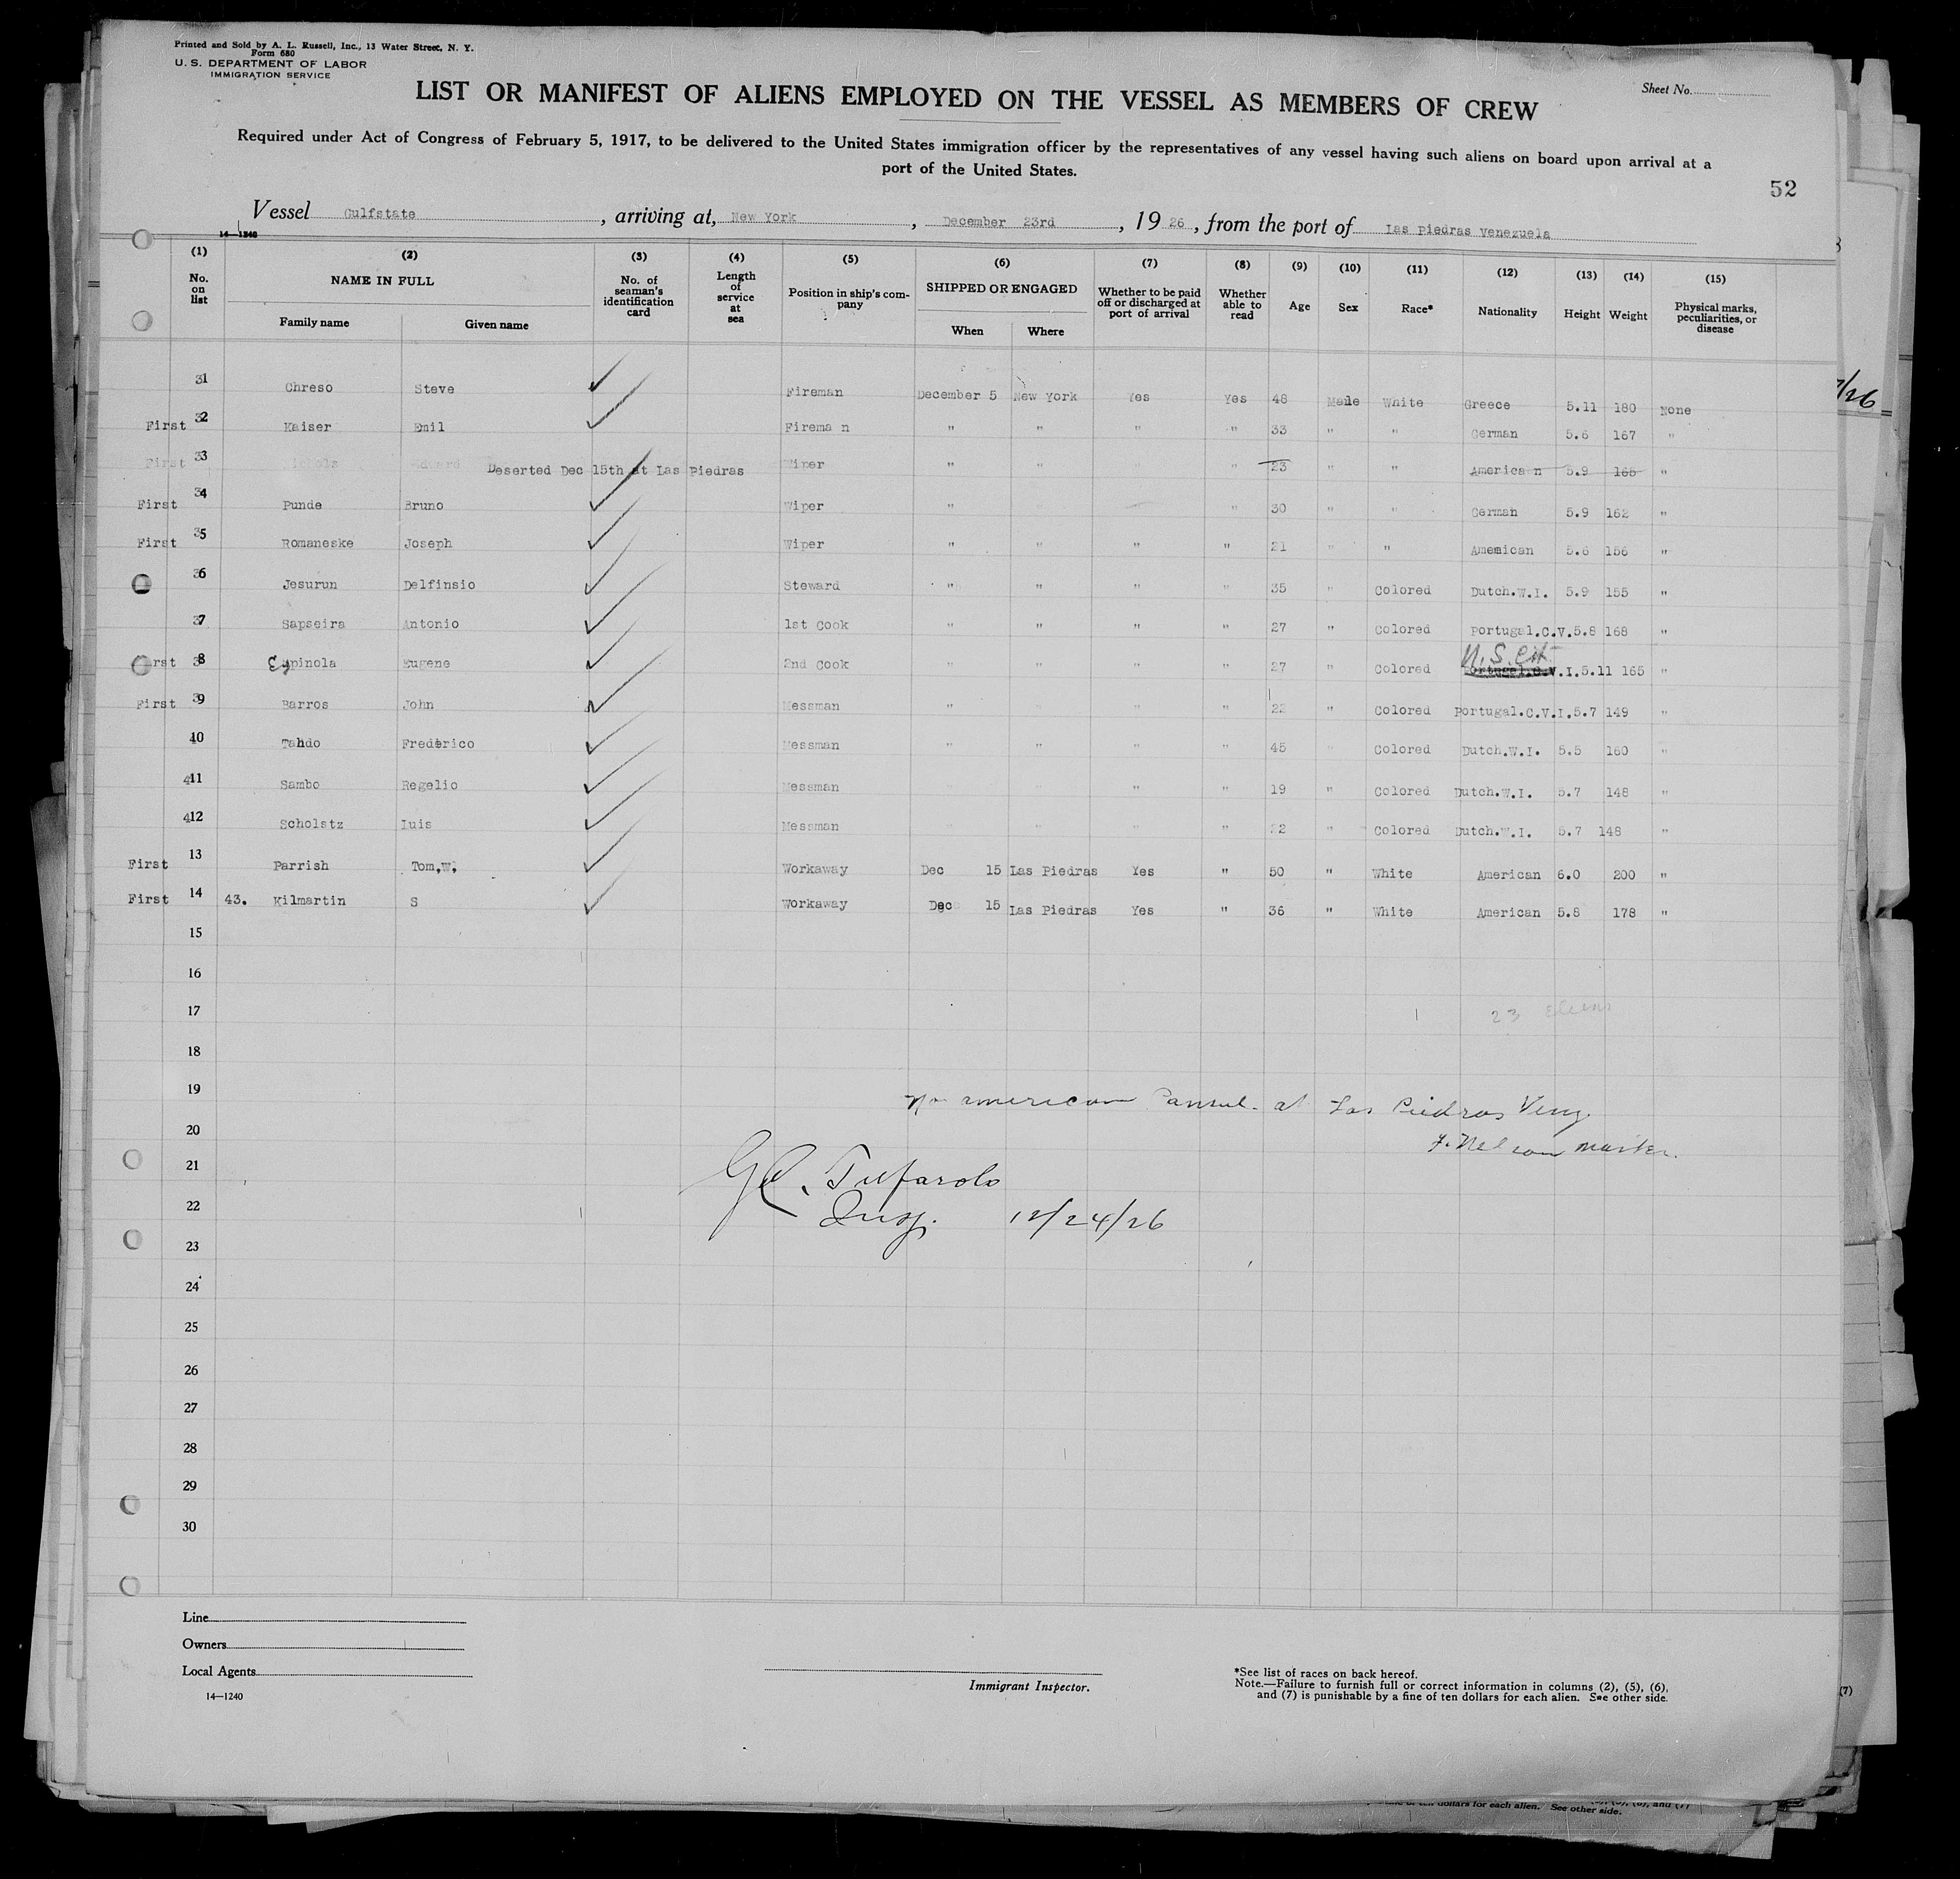 Printed and Sold by A. L. Russell, Inc., 13 Water Street, N. Y.
Form 680
U. S. DEPARTMENT OF LABOR
IMMIGRATION SERVICE
Sheet No.
LIST OR MANIFEST OF ALIENS EMPLOYED ON THE VESSEL AS MEMBERS OF CREW
Required under Act of Congress of February 5, 1917, to be delivered to the United States immigration officer by the representatives of any vessel having such aliens on board upon arrival at a
port of the United States.
52
Vessel Gulfstate, arriving at, New York, December 23rd, 1926, from the port of Las Piedras Venezuela
14—1240
(1) (2) (3) (4) (5) (6) (7) (8) (9) (10) (11) (12) (13) (14) (15)
No. on list NAME IN FULL Family name Given name No. of seaman's identification card Length of service at sea Position in ship's company SHIPPED OR ENGAGED When Where Whether to be paid off or discharged at port of arrival Whether able to read Age Sex Race* Nationality Height Weight Physical marks, peculiarities, or disease
31 Chreso Steve Fireman December 5 New York Yes Yes 48 Male White Greece 5.11 180 None
First 32 Kaiser Emil Firema n " " " " 33 " " German 5.6 167 "
First 33 Nichols Edward Deserted Dec 15th at Las Piedras Wiper " " " " 23 " " America n 5.9 165 "
First 34 Punde Bruno Wiper " " " 30 " " German 5.9 162 "
First 35 Romaneske Joseph Wiper " " " " 21 " " American 5.6 156 "
36 Jesurun Delfinsio Steward " " " " 35 " Colored Dutch.W.I. 5.9 155 "
37 Sapseira Antonio 1st Cook " " " " 27 " Colored Portugal.C.V. 5.8 168 "
First 38 Espinola Eugene 2nd Cook " " " " 27 " Colored U.S. Cit Portugal.C.V.I. 5.11 165 "
First 39 Barros John Messman " " " " 22 " Colored Portugal.C.V.I. 5.7 149 "
40 Tahdo Frederico Messman " " " " 45 " Colored Dutch.W.I. 5.5 160 "
411 Sambo Regelio Messman " " " " 19 " Colored Dutch.W.I. 5.7 148 "
412 Scholstz Luis Messman " " " " 22 " Colored Dutch.W.I. 5.7 148 "
First 13 Parrish Tom,W, Workaway Dec 15 Las Piedras Yes " 50 " White American 6.0 200 "
First 14 43. Kilmartin S Workaway Dec 15 Las Piedras Yes " 36 " White American 5.8 178 "
15
16
17 23 aliens
18
19 No american Consul. at Las Piedras Venz.
20 F. Nelson master.
21 Tufarolo
22 Insp. 12/24/26
23
24
25
26
27
28
29
30
Line
Owners
Local Agents
14—1240
Immigrant Inspector.
*See list of races on back hereof.
Note.—Failure to furnish full or correct information in columns (2), (5), (6),
and (7) is punishable by a fine of ten dollars for each alien. See other side.